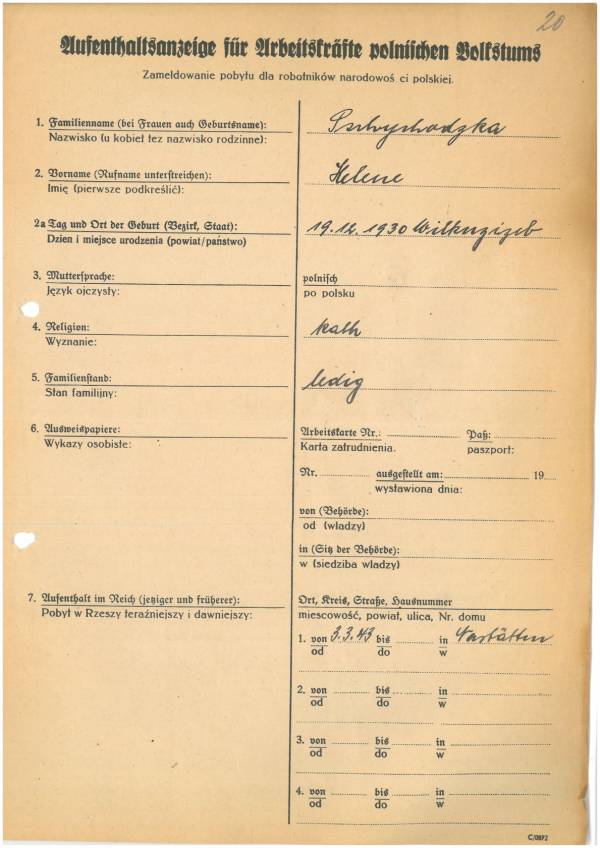 20
Aufenthaltsanzeige für Arbeitskräfte polnischen Volkstums
Zameldowanie pobytu dla robotników narodowoś ci polskiej.
1. Familienname (bei Frauen auch Geburtsname):
Nazwisko (u kobiet też nazwisko rodzinne):
2. Vorname (Rufname unterstreichen):
Imię (pierwsze podkreślić):
Helene
2a Tag und Ort der Geburt (Bezirk, Staat):
Dzień i miejsce urodzenia (powiat/państwo)
19.12.1930
3. Muttersprache:
Język ojczysty:
polnisch
po polsku
4. Religion:
Wyznanie:
kath
5. Familienstand:
Stan familijny:
ledig
6. Ausweispapiere:
Wykazy osobiste:
Arbeitskarte Nr.: Paß:
Karta zatrudnienia. paszport:
Nr. ausgestellt am: 19
wystawiona dnia:
von (Behörde):
od (władzy)
in (Sitz der Behörde):
w (siedziba władzy)
7. Aufenthalt im Reich (jetziger und früherer):
Pobyt w Rzeszy teraźniejszy i dawniejszy:
Ort, Kreis, Straße, Hausnummer
miescowość, powiat, ulica, Nr. domu
1. von 3.3.43 bis in Nastätten
od do w
2. von bis in
od do w
3. von bis in
od do w
4. von bis in
od do w
C/0872